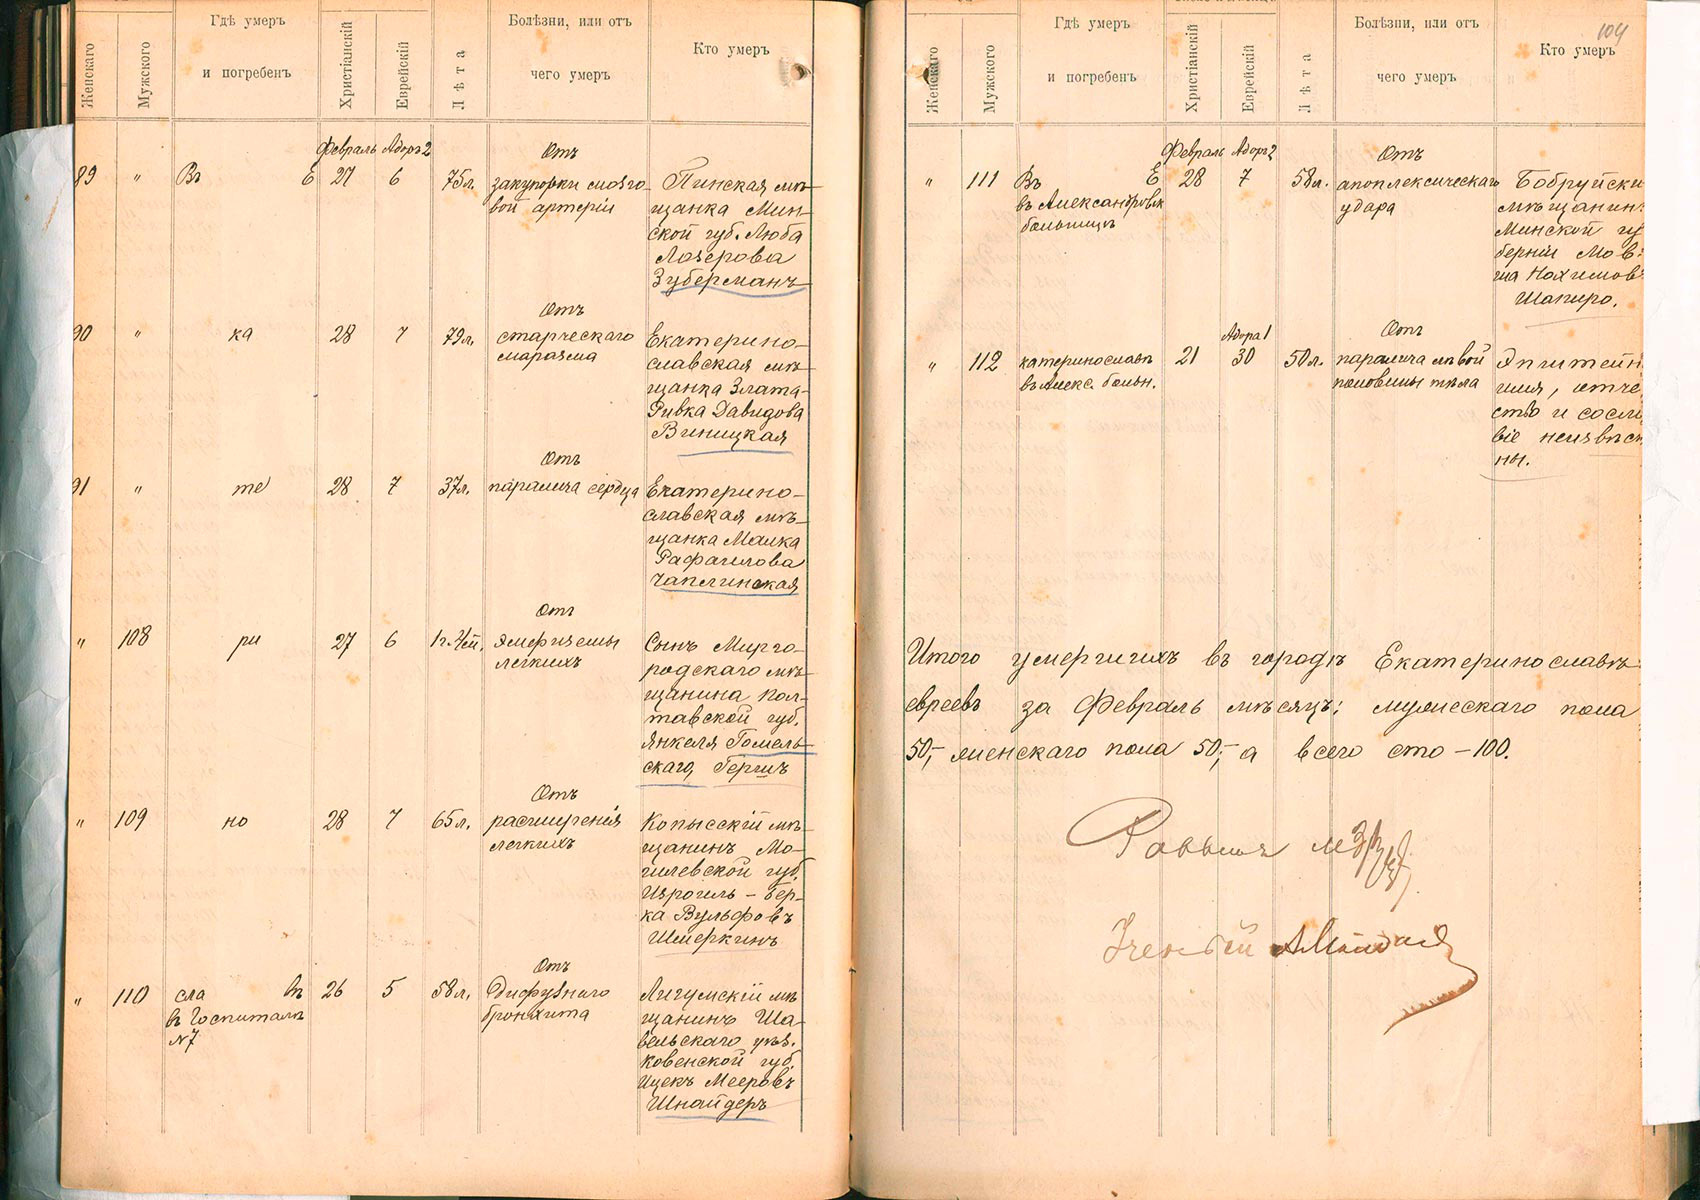 Женскаго
Мужского
Гдѣ умеръ
и погребенъ
Христіанскій
Еврейскій
Лѣта
Болѣзни, или отъ
чего умеръ
Кто умеръ
Февраль Адоръ2
89 " Въ Е 27 6 75л.
Отъ
закупорки мозго-
вой артеріи
Пинская мѣ-
щанка Мин-
ской губ. Люба
Лозерова
Зуберманъ
90 " ка 28 7 79л.
Отъ
старческаго
маразма
Екатерино-
славская мѣ-
щанка Злата-
Ривка Давидова
Виницкая
91 " те 28 7 37л.
Отъ
паралича сердца
Екатерино-
славская мѣ-
щанка Малка
Рафаилова
Чаплинская
" 108 ри 27 6 1г. 4м.
Отъ
эмфиземы
легкихъ
Сынъ Мирго-
родскаго мѣ-
щанина Пол-
тавской губ.
Янкеля Гомель-
скаго, Гершъ
" 109 но 28 7 65л.
Отъ
расширенія
легкихъ
Копысскій мѣ-
щанинъ Мо-
гилевской губ.
Изроиль - Бер-
ка Вульфовъ
Шмеркинъ
" 110 сла вѣ 26 5 58л.
въ Госпиталѣ
№7
Отъ
Дифузнаго
бронхита
Лигумскій мѣ
щанинъ Ша-
вельскаго уѣз.
Ковенской губ.
Ицекъ Мееровъ
Шнайдеръ
104
Женскаго
Мужского
Гдѣ умеръ
и погребенъ
Христіанскій
Еврейскій
Лѣта
Болѣзни, или отъ
чего умеръ
Кто умеръ
Февраль Адоръ2
" 111 Въ Е 28 7 58л.
въ Александровск
больницѣ
Отъ
апоплексическаго
удара
Бобруйски
мѣщанин
Минской гу
берніи Мов-
ша Нохимовъ
Шапиро.
Адоръ1
" 112 катеринославѣ 21 30 50л.
въ Алекс. больн.
Отъ
паралича лѣвой
половины тѣла
Эпштейн
имя, отче
ство и сосло
віе неизвѣст
ны.
Итого умершихъ въ городѣ Екатеринославѣ
евреевъ за Февраль мѣсяцъ: мужескаго пола
50,- женскаго пола 50,- а всего сто - 100.
Раввинъ
Ученый